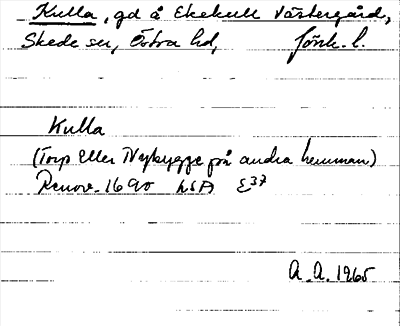 Kulla, gd å Ekekull Västergård,
Skede sn, Östra hd, Jönk. l.
Kulla
(Torp Eller Nybygge på andra hemman)
Renov. 1690 LSA E37
A. A. 1965